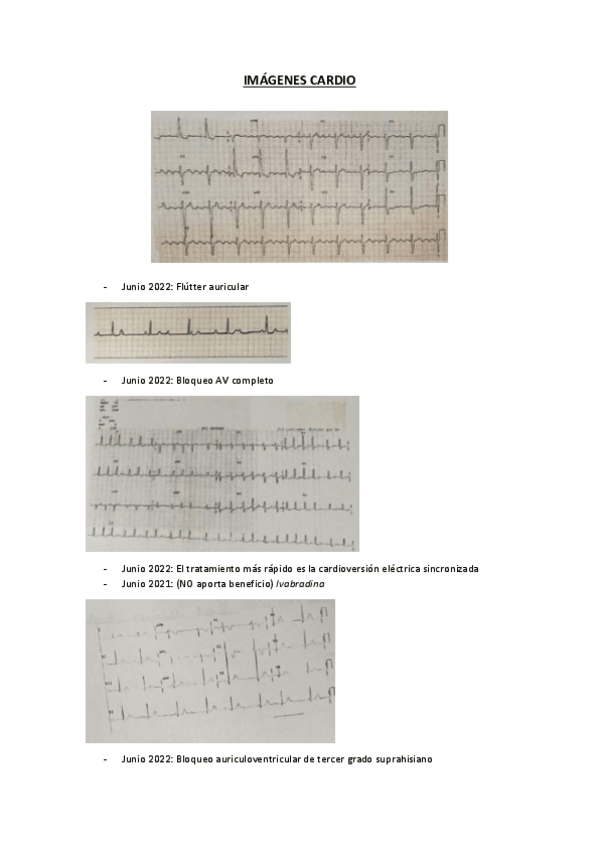 IMÁGENES CARDIO
- Junio 2022: Flútter auricular
- Junio 2022: Bloqueo AV completo
- Junio 2022: El tratamiento más rápido es la cardioversión eléctrica sincronizada
- Junio 2021: (NO aporta beneficio) Ivabradina
- Junio 2022: Bloqueo auriculoventricular de tercer grado suprahisiano